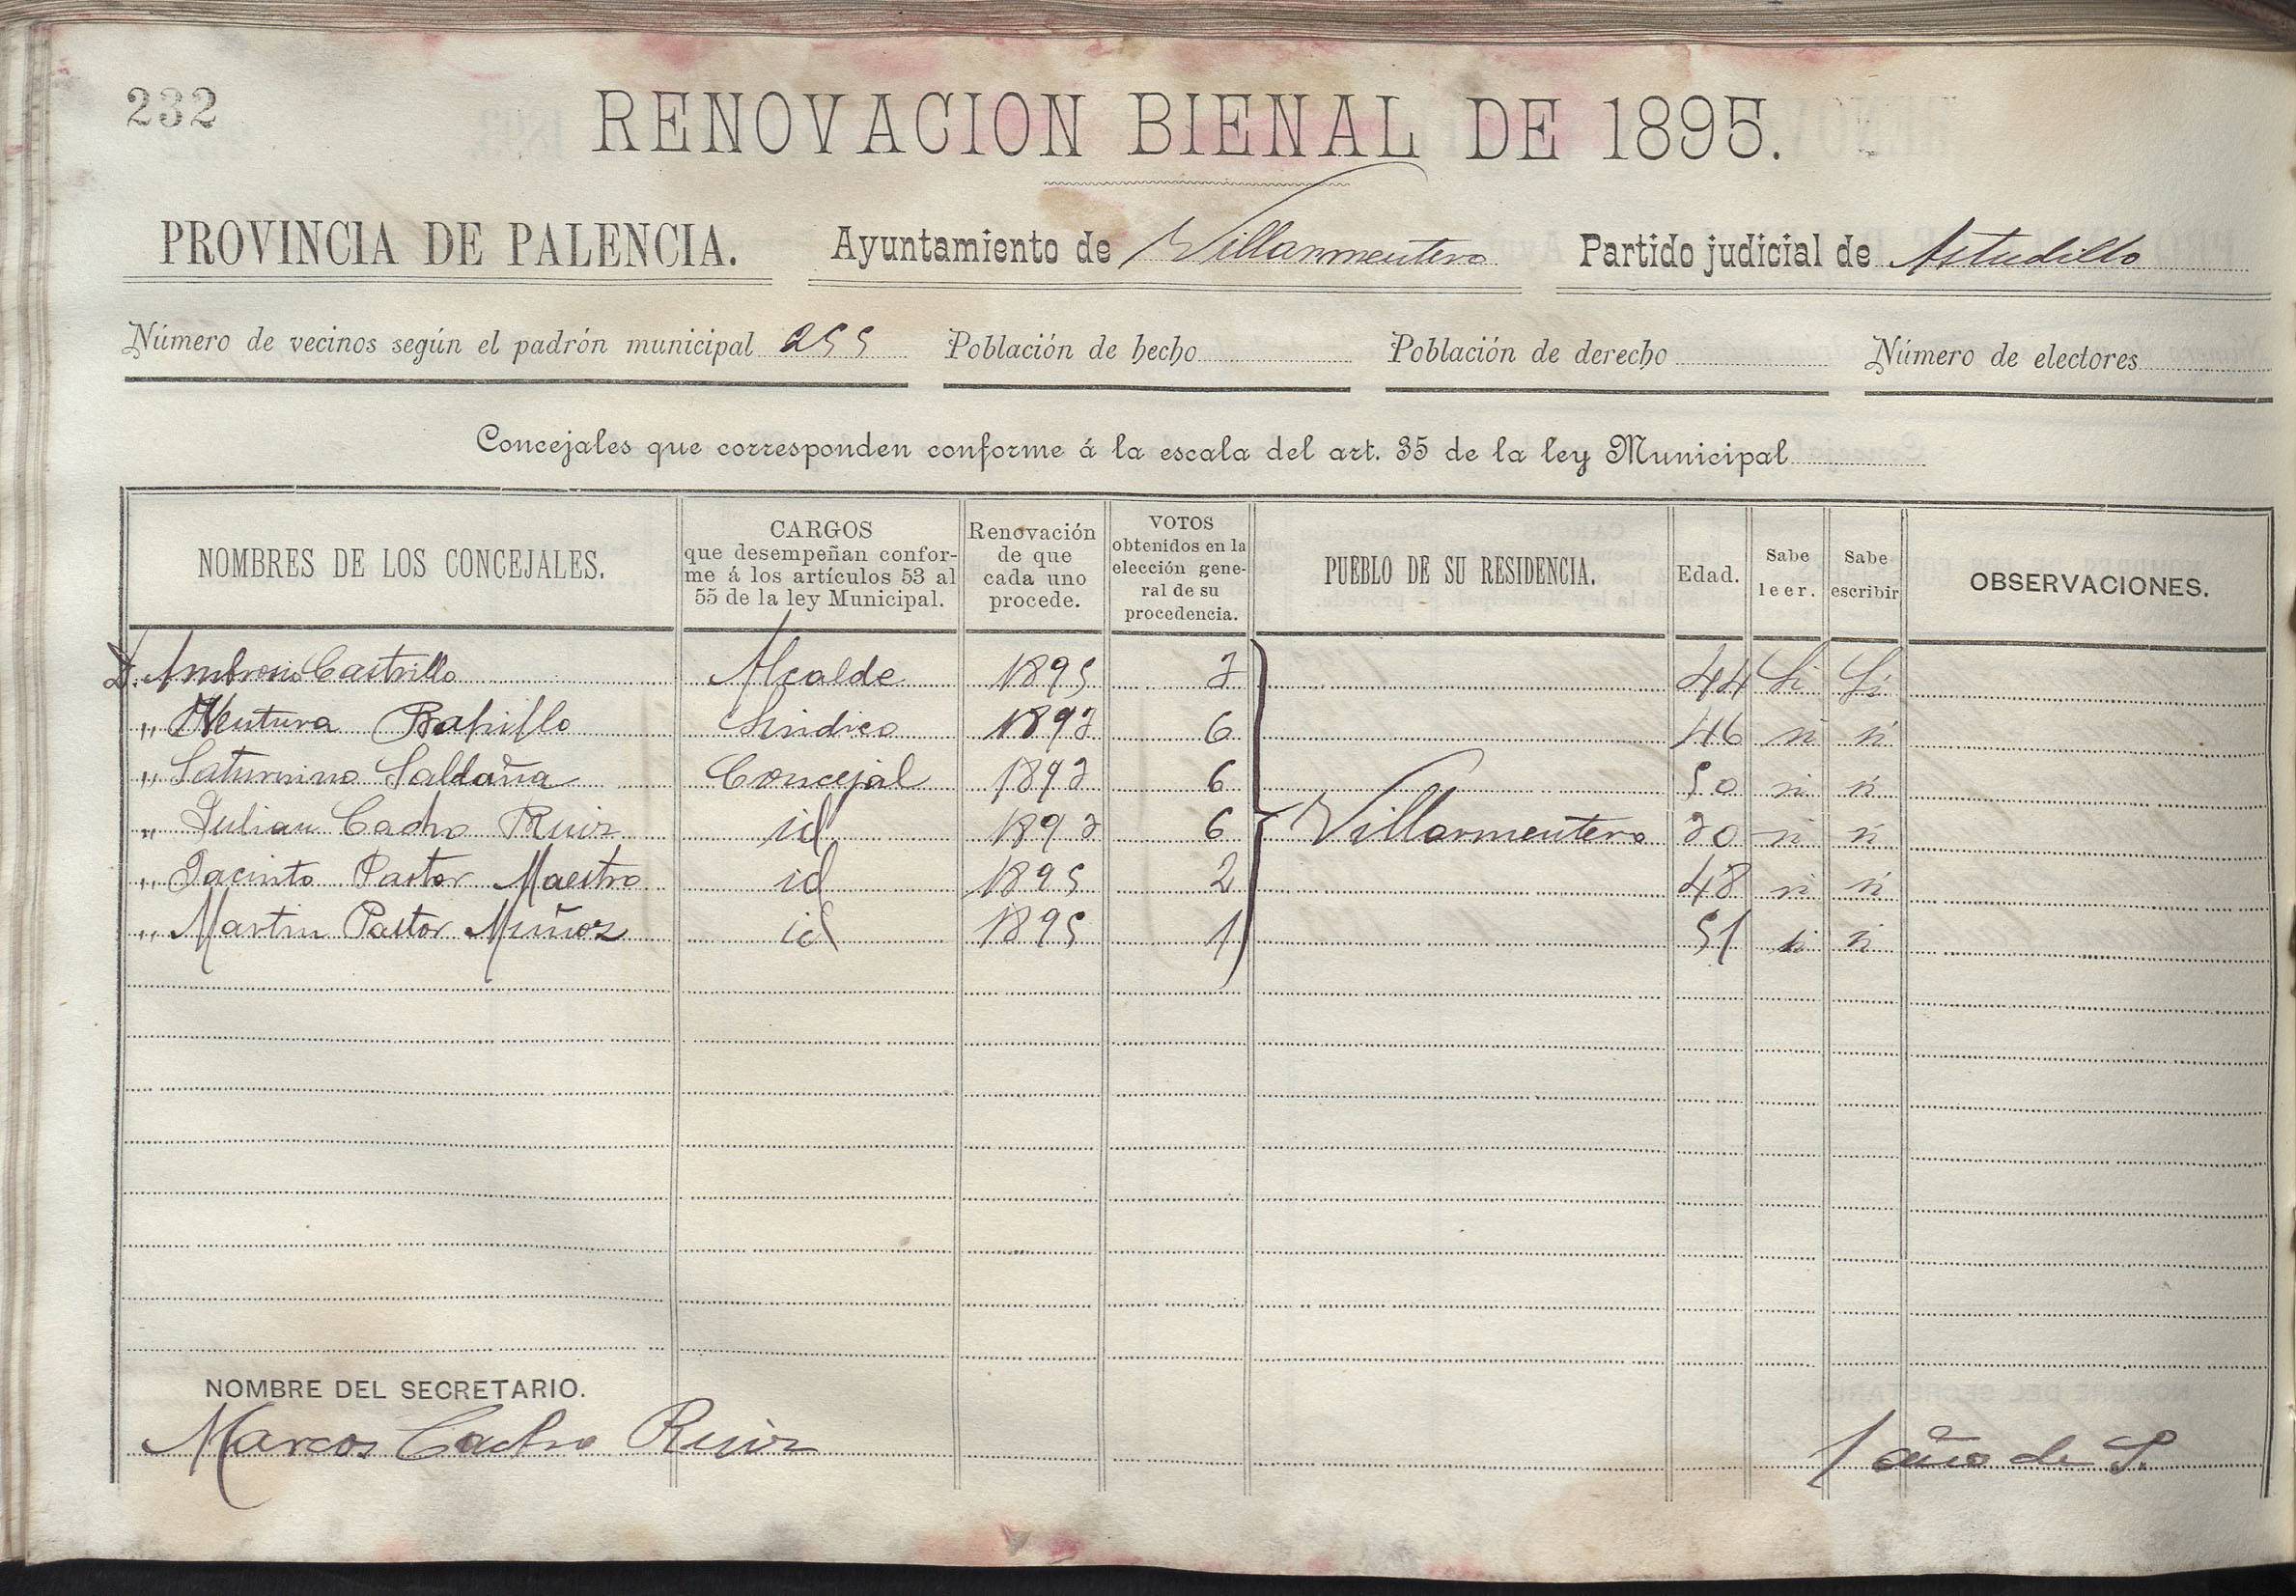 232
RENOVACION BIENAL DE 1895.
PROVINCIA DE PALENCIA. Ayuntamiento de Villarmentero Partido judicial de Astudillo
Número de vecinos según el padrón municipal 255 Población de hecho Población de derecho Número de electores
Concejales que corresponden conforme á la escala del art. 35 de la ley Municipal
NOMBRES DE LOS CONCEJALES.
CARGOS
que desempeñan confor-
me á los artículos 53 al
55 de la ley Municipal.
Renovación
de que
cada uno
procede.
VOTOS
obtenidos en la
elección gene-
ral de su
procedencia.
PUEBLO DE SU RESIDENCIA.
Edad.
Sabe
leer.
Sabe
escribir
OBSERVACIONES.
D. Ambrosio Castrillo Alcalde 1895 2 44 Si Si
" Ventura Sindico 1893 6 46 si si
" Saturnino Saldaña Concejal 1893 6 50 si si
" Julian Cacho Ruiz id 1893 6 Villarmentero 30 si si
" Jacinto Pastor Maestro id 1895 2 48 si si
" Martin Pastor Muñoz id 1895 1 51 si si
NOMBRE DEL SECRETARIO.
Marcos Cacho Ruiz 1 año de S.